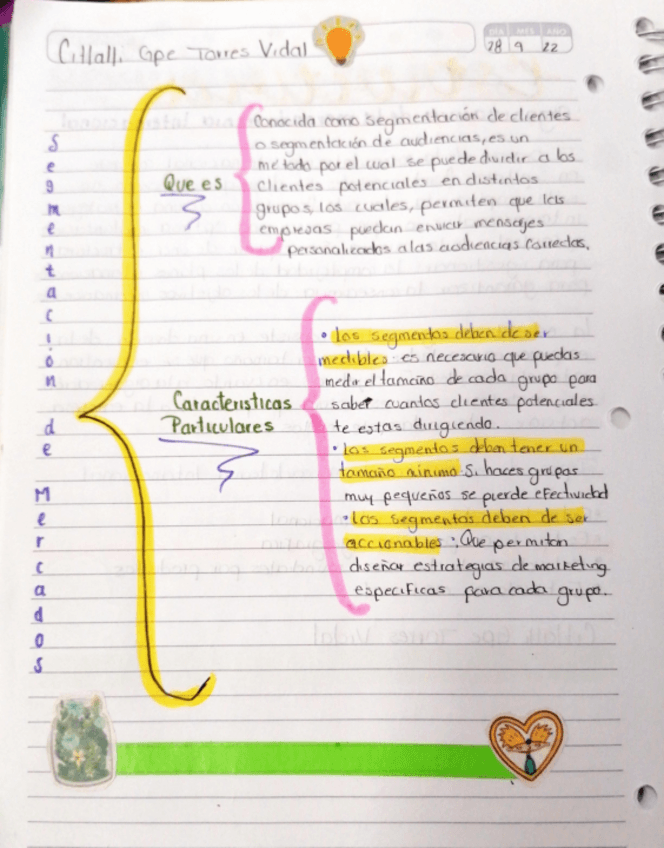 Citlalli Gpe Torres Vidal
DÍA MES AÑO
28 9 22
Segmentación de Mercados
Que es
Conocida como segmentación de clientes
o segmentación de audiencias, es un
método por el cual se puede dividir a los
clientes potenciales en distintos
grupos, los cuales, permiten que las
empresas puedan enviar mensajes
personalizados a las audiencias correctas.
Caracteristicas
Particulares
• los segmentos deben de ser
medibles: es necesario que puedas
medir el tamaño de cada grupo para
saber cuantos clientes potenciales
te estas dirigiendo.
• los segmentos deben tener un
tamaño minimo Si haces grupos
muy pequeños se pierde efectividad
• los segmentos deben de ser
accionables: Que permitan
diseñar estrategias de marketing
especificas para cada grupo.